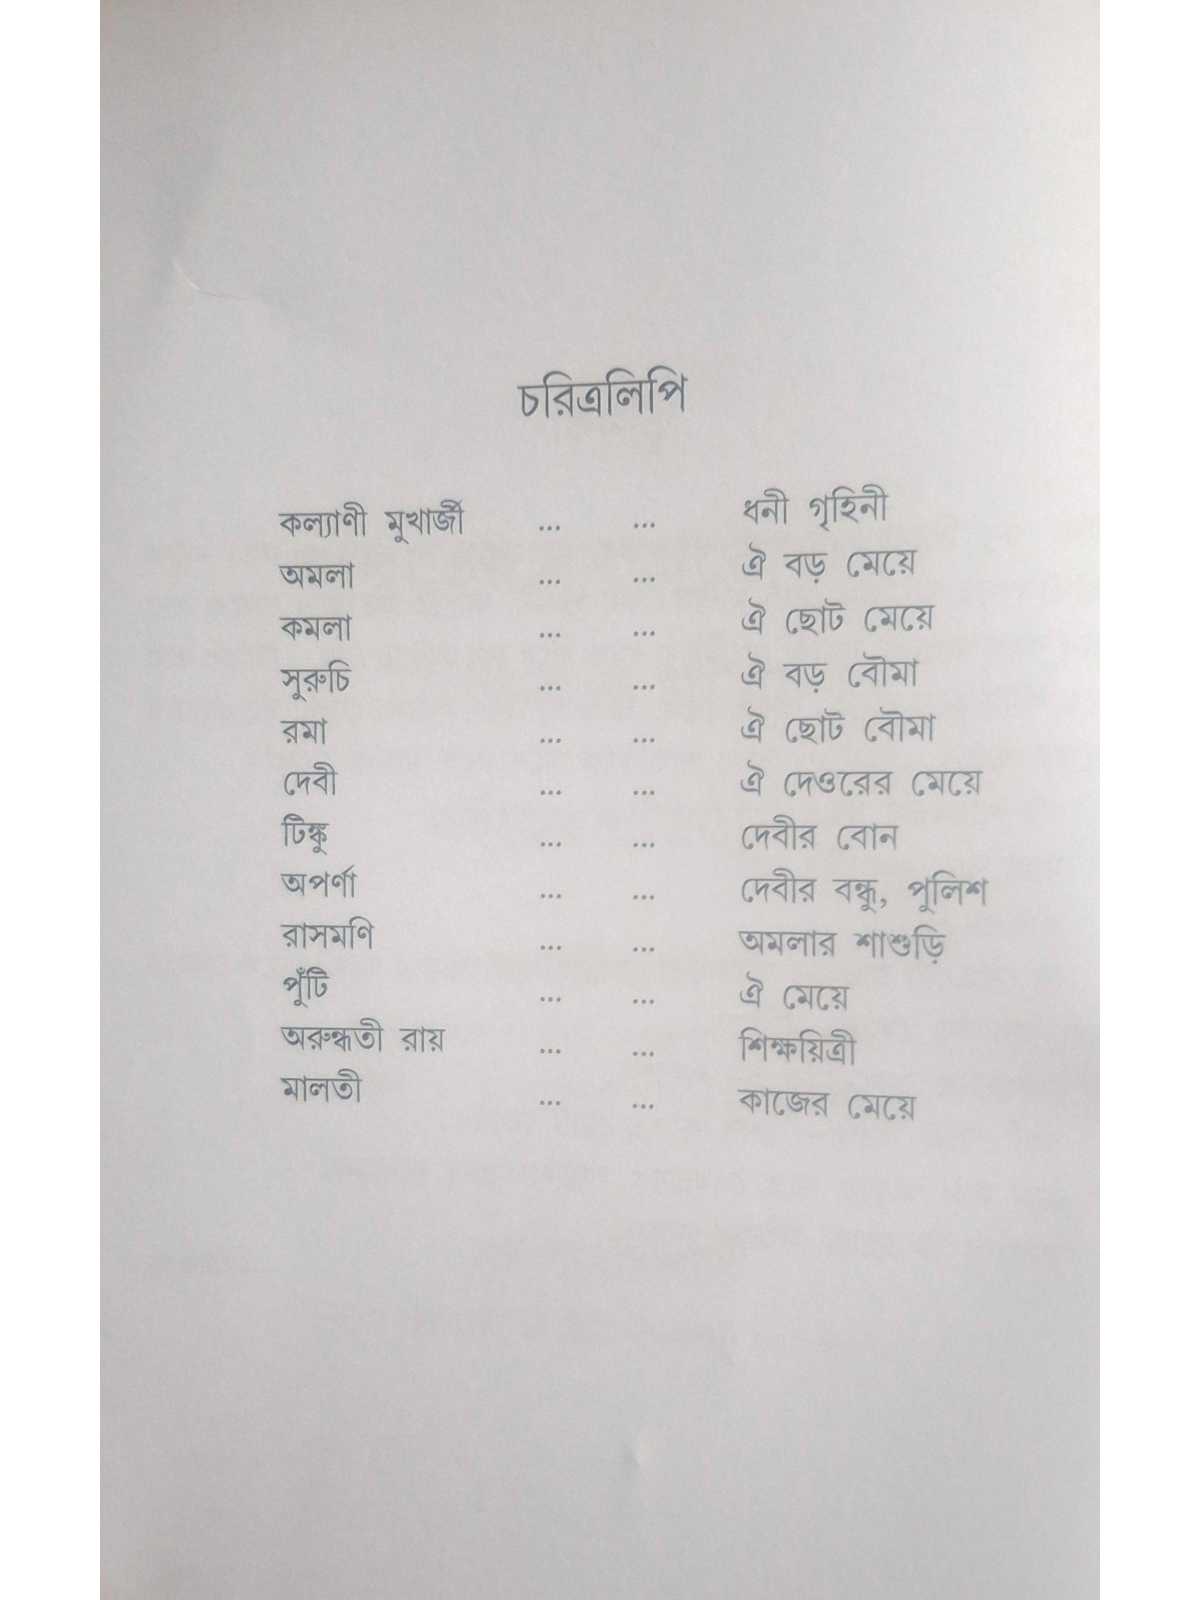 চরিত্রলিপি
কল্যাণী মুখার্জী ... ... ধনী গৃহিনী
অমলা ... ... ঐ বড় মেয়ে
কমলা ... ... ঐ ছোট মেয়ে
সুরুচি ... ... ঐ বড় বৌমা
রমা ... ... ঐ ছোট বৌমা
দেবী ... ... ঐ দেওরের মেয়ে
টিঙ্কু ... ... দেবীর বোন
অপর্ণা ... ... দেবীর বন্ধু, পুলিশ
রাসমণি ... ... অমলার শাশুড়ি
পুঁটি ... ... ঐ মেয়ে
অরুন্ধতী রায় ... ... শিক্ষয়িত্রী
মালতী ... ... কাজের মেয়ে